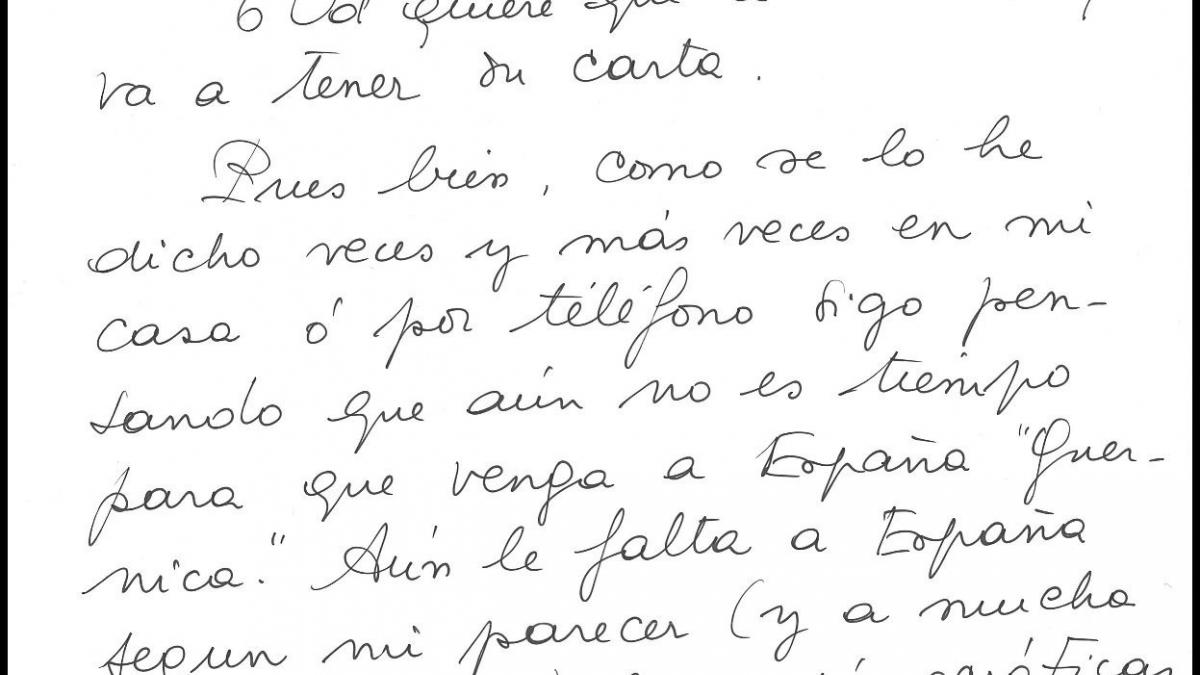 ó Ud quiere que
va a tener su carta.
Pues bien, como se lo he
dicho veces y más veces en mi
casa ó por téléfono sigo pen-
sando que aún no es tiempo
para que venga a España "Guer-
nica." Aún le falta a España
segun mi parecer (y a mucha